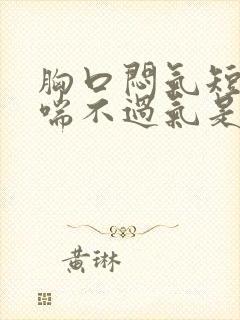 胸口悶氣短
喘不過氣是
黃琳